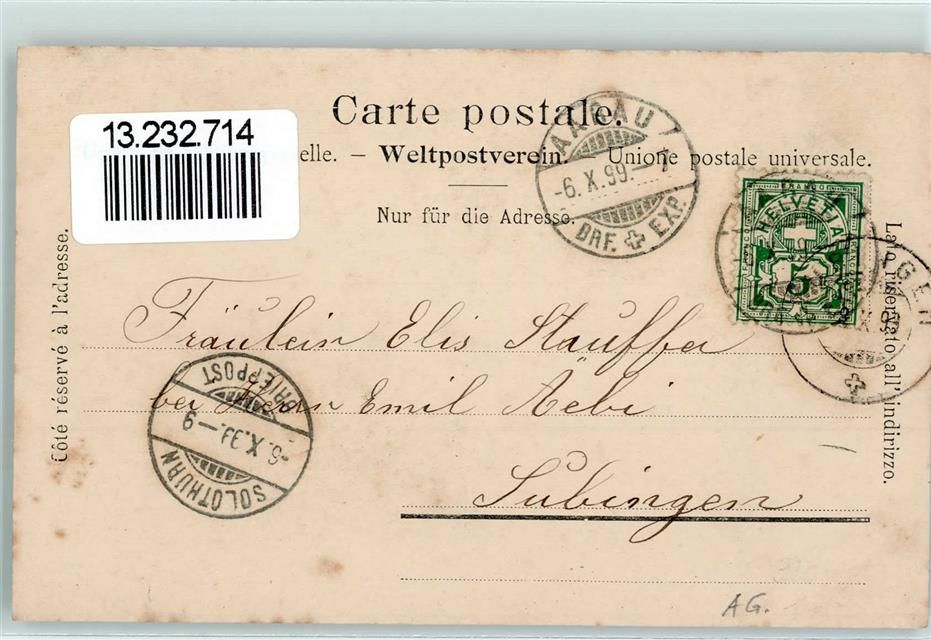 Carte postale.
13.232.714
elle. – Weltpostverein. – Unione postale universale.
Nur für die Adresse.
Côté réservé à l'adresse.
Lato riservato all'indirizzo.
AARAU
-6.X.99-7
BRF. EXP.
HELVETIA
5
GEN
Fräulein Elis Stauffer
bei Herrn Emil Aebi
Subingen
SOLOTHURN
-6.X.99-9
BRIEFPOST
AG.